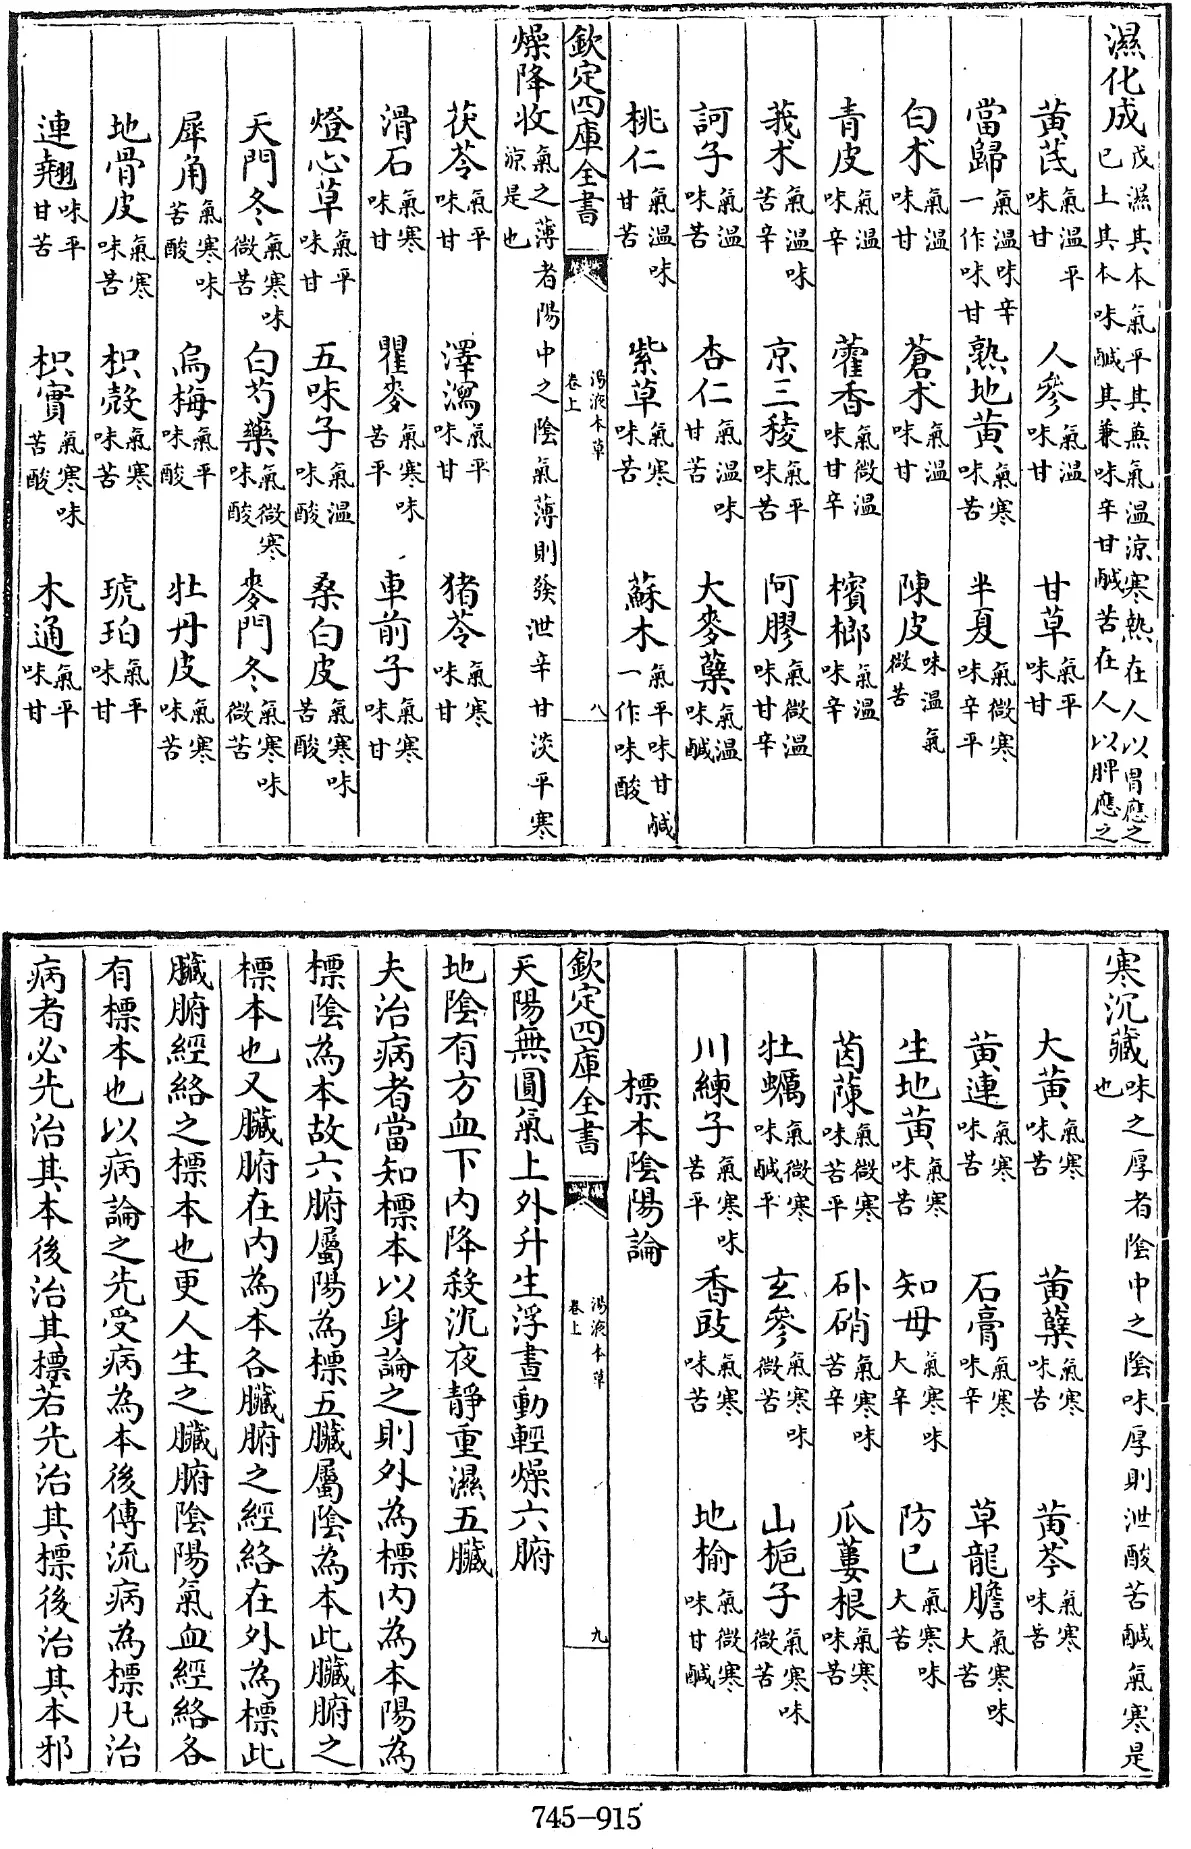 濕化成戊濕其本氣平其兼氣溫涼寒熱在人以胃應之己土其本味鹹其兼味辛甘鹹苦在人以脾應之
黃芪氣溫平味甘 人參氣溫味甘 甘草氣平味甘
當歸氣溫味辛一作味甘 熟地黃氣寒味苦 半夏氣微寒味辛平
白朮氣溫味甘 蒼朮氣溫味甘 陳皮味溫氣微苦
青皮氣溫味辛 藿香氣微溫味甘辛 檳榔氣溫味辛
莪朮氣溫味苦辛 京三稜氣平味苦 阿膠氣微溫味甘辛
訶子氣溫味苦 杏仁氣溫味甘苦 大麥蘖氣溫味鹹
桃仁氣溫味甘苦 紫草氣寒味苦 蘇木氣平味甘鹹一作味酸
欽定四庫全書 湯液本草卷上 八
燥降收氣之薄者陽中之陰氣薄則發泄辛甘淡平寒涼是也
茯苓氣平味甘 澤瀉氣平味甘 猪苓氣寒味甘
滑石氣寒味甘 瞿麥氣寒味苦平 車前子氣寒味甘
燈心草氣平味甘 五味子氣溫味酸 桑白皮氣寒味苦酸
天門冬氣寒味微苦 白芍藥氣微寒味酸 麥門冬氣寒味微苦
犀角氣寒味苦酸 烏梅氣平味酸 牡丹皮氣寒味苦
地骨皮氣寒味苦 枳殼氣寒味苦 琥珀氣平味甘
連翹味平甘苦 枳實氣寒味苦酸 木通氣平味甘
寒沉藏味之厚者陰中之陰味厚則泄酸苦鹹氣寒是也
大黃氣寒味苦 黃蘗氣寒味苦 黃芩氣寒味苦
黃連氣寒味苦 石膏氣寒味辛 草龍膽氣寒味大苦
生地黃氣寒味苦 知母氣寒味大辛 防已氣寒味大苦
茵蔯氣微寒味苦平 朴硝氣寒味苦辛 瓜蔞根氣寒味苦
牡蠣氣微寒味鹹平 玄參氣寒味微苦 山梔子氣寒味微苦
川練子氣寒味苦平 香豉氣寒味苦 地榆氣微寒味甘鹹
標本陰陽論
欽定四庫全書 湯液本草卷上 九
天陽無圓氣上外升生浮晝動輕燥六腑
地陰有方血下內降殺沉夜靜重濕五臟
夫治病者當知標本以身論之則外為標內為本陽為
標陰為本故六腑屬陽為標五臟屬陰為本此臟腑之
標本也又臟腑在內為本各臟腑之經絡在外為標此
臟腑經絡之標本也更人生之臟腑陰陽氣血經絡各
有標本也以病論之先受病為本後傳流病為標凡治
病者必先治其本後治其標若先治其標後治其本邪
745-915